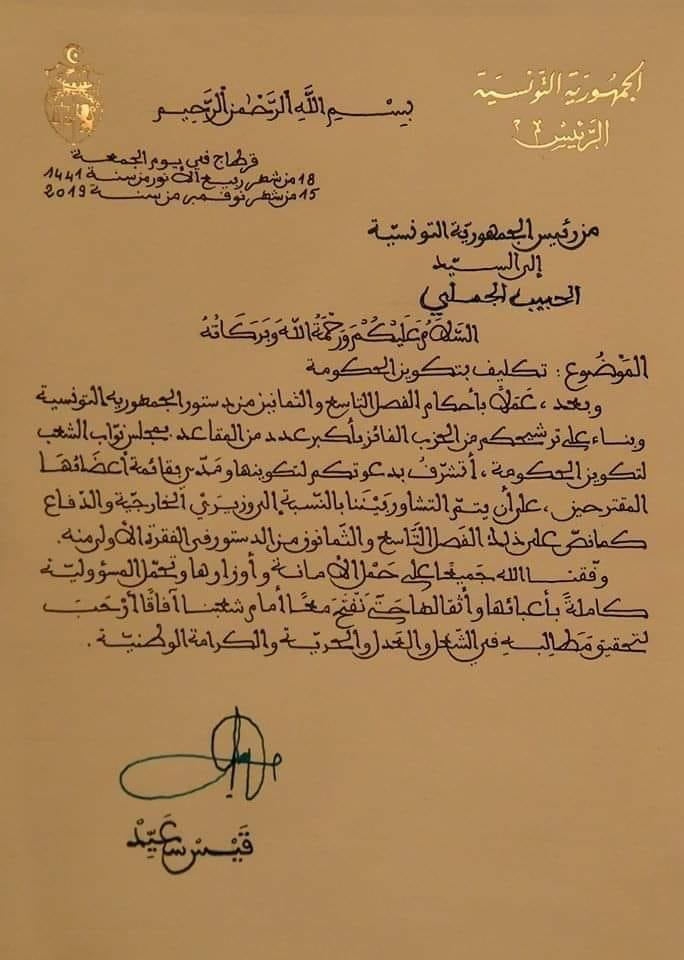 الجمهورية التونسية
الرئيس
بِسْمِ اللَّهِ الرَّحْمٰنِ الرَّحِيمِ
قرطاج في يوم الجمعة
18 من شهر ربيع الأنور من سنة 1441
15 من شهر نوفمبر من سنة 2019
من رئيس الجمهوريّة التونسيّة
إلى السيّد
الحبيب الجملي
السَّلَامُ عَلَيْكُمْ وَرَحْمَةُ اللَّهِ وَبَرَكَاتُهُ
المَوْضُوع : تكليف بتكوين الحكومة
وبعد ، عَمَلاً بأحكام الفصل التاسع والثمانين من دستور الجمهورية التونسية
وبناء على ترشيحكم من الحزب الفائز بأكبر عدد من المقاعد بمجلس نوّاب الشعب
لتكوين الحكومة ، أتشرّفُ بدعوتكم لتكوينها ومَدّي بقائمة أعضائها
المقترحين ، على أن يتمّ التشاور بَيْننا بالنّسبة إلى وزيريْ الخارجيّة والدّفاع
كما نصّ على ذلك الفصل التَّاسع والثّمانون من الدستور في الفقرة الأولى منه.
وفّقنا الله جَميعًا على حَمْل الأمانة وأوزارها وتحمّل المسؤوليّة
كاملةً بأعبائها وأثقالها حَتَّى نَفْتَحَ معًا أمام شعبنا آفاقًا أرْحَبَ
لتحقيق مَطَالبه في الشّغل والعَدل والحريّة والكرامة الوطنيّة .
قَيْس سَعَيِّدْ